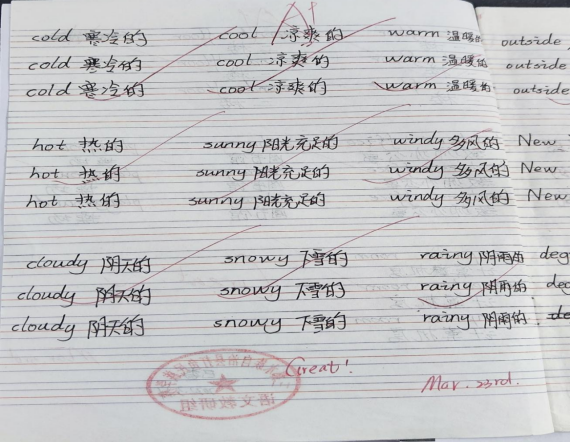 A+
cold 寒冷的 cool 凉爽的 warm 温暖的 outside
cold 寒冷的 cool 凉爽的 warm 温暖的 outside
cold 寒冷的 cool 凉爽的 warm 温暖的 outside
hot 热的 sunny 阳光充足的 windy 多风的 New
hot 热的 sunny 阳光充足的 windy 多风的 New
hot 热的 sunny 阳光充足的 windy 多风的 New
cloudy 阴天的 snowy 下雪的 rainy 阴雨的 deg
cloudy 阴天的 snowy 下雪的 rainy 阴雨的 deg
cloudy 阴天的 snowy 下雪的 rainy 阴雨的 de
Great!
语文教研组
Mar. 23rd.